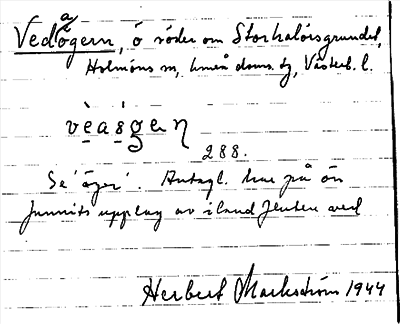 Vedågern, ö söder om Storhalörsgrundet,
Holmöns sn, Umeå doms. tg, Västerb. l.
vèaságeη
288.
Se 'åger'. Antagl. har på ön
funnits upplag av iland fluten ved
Herbert Markström 1944